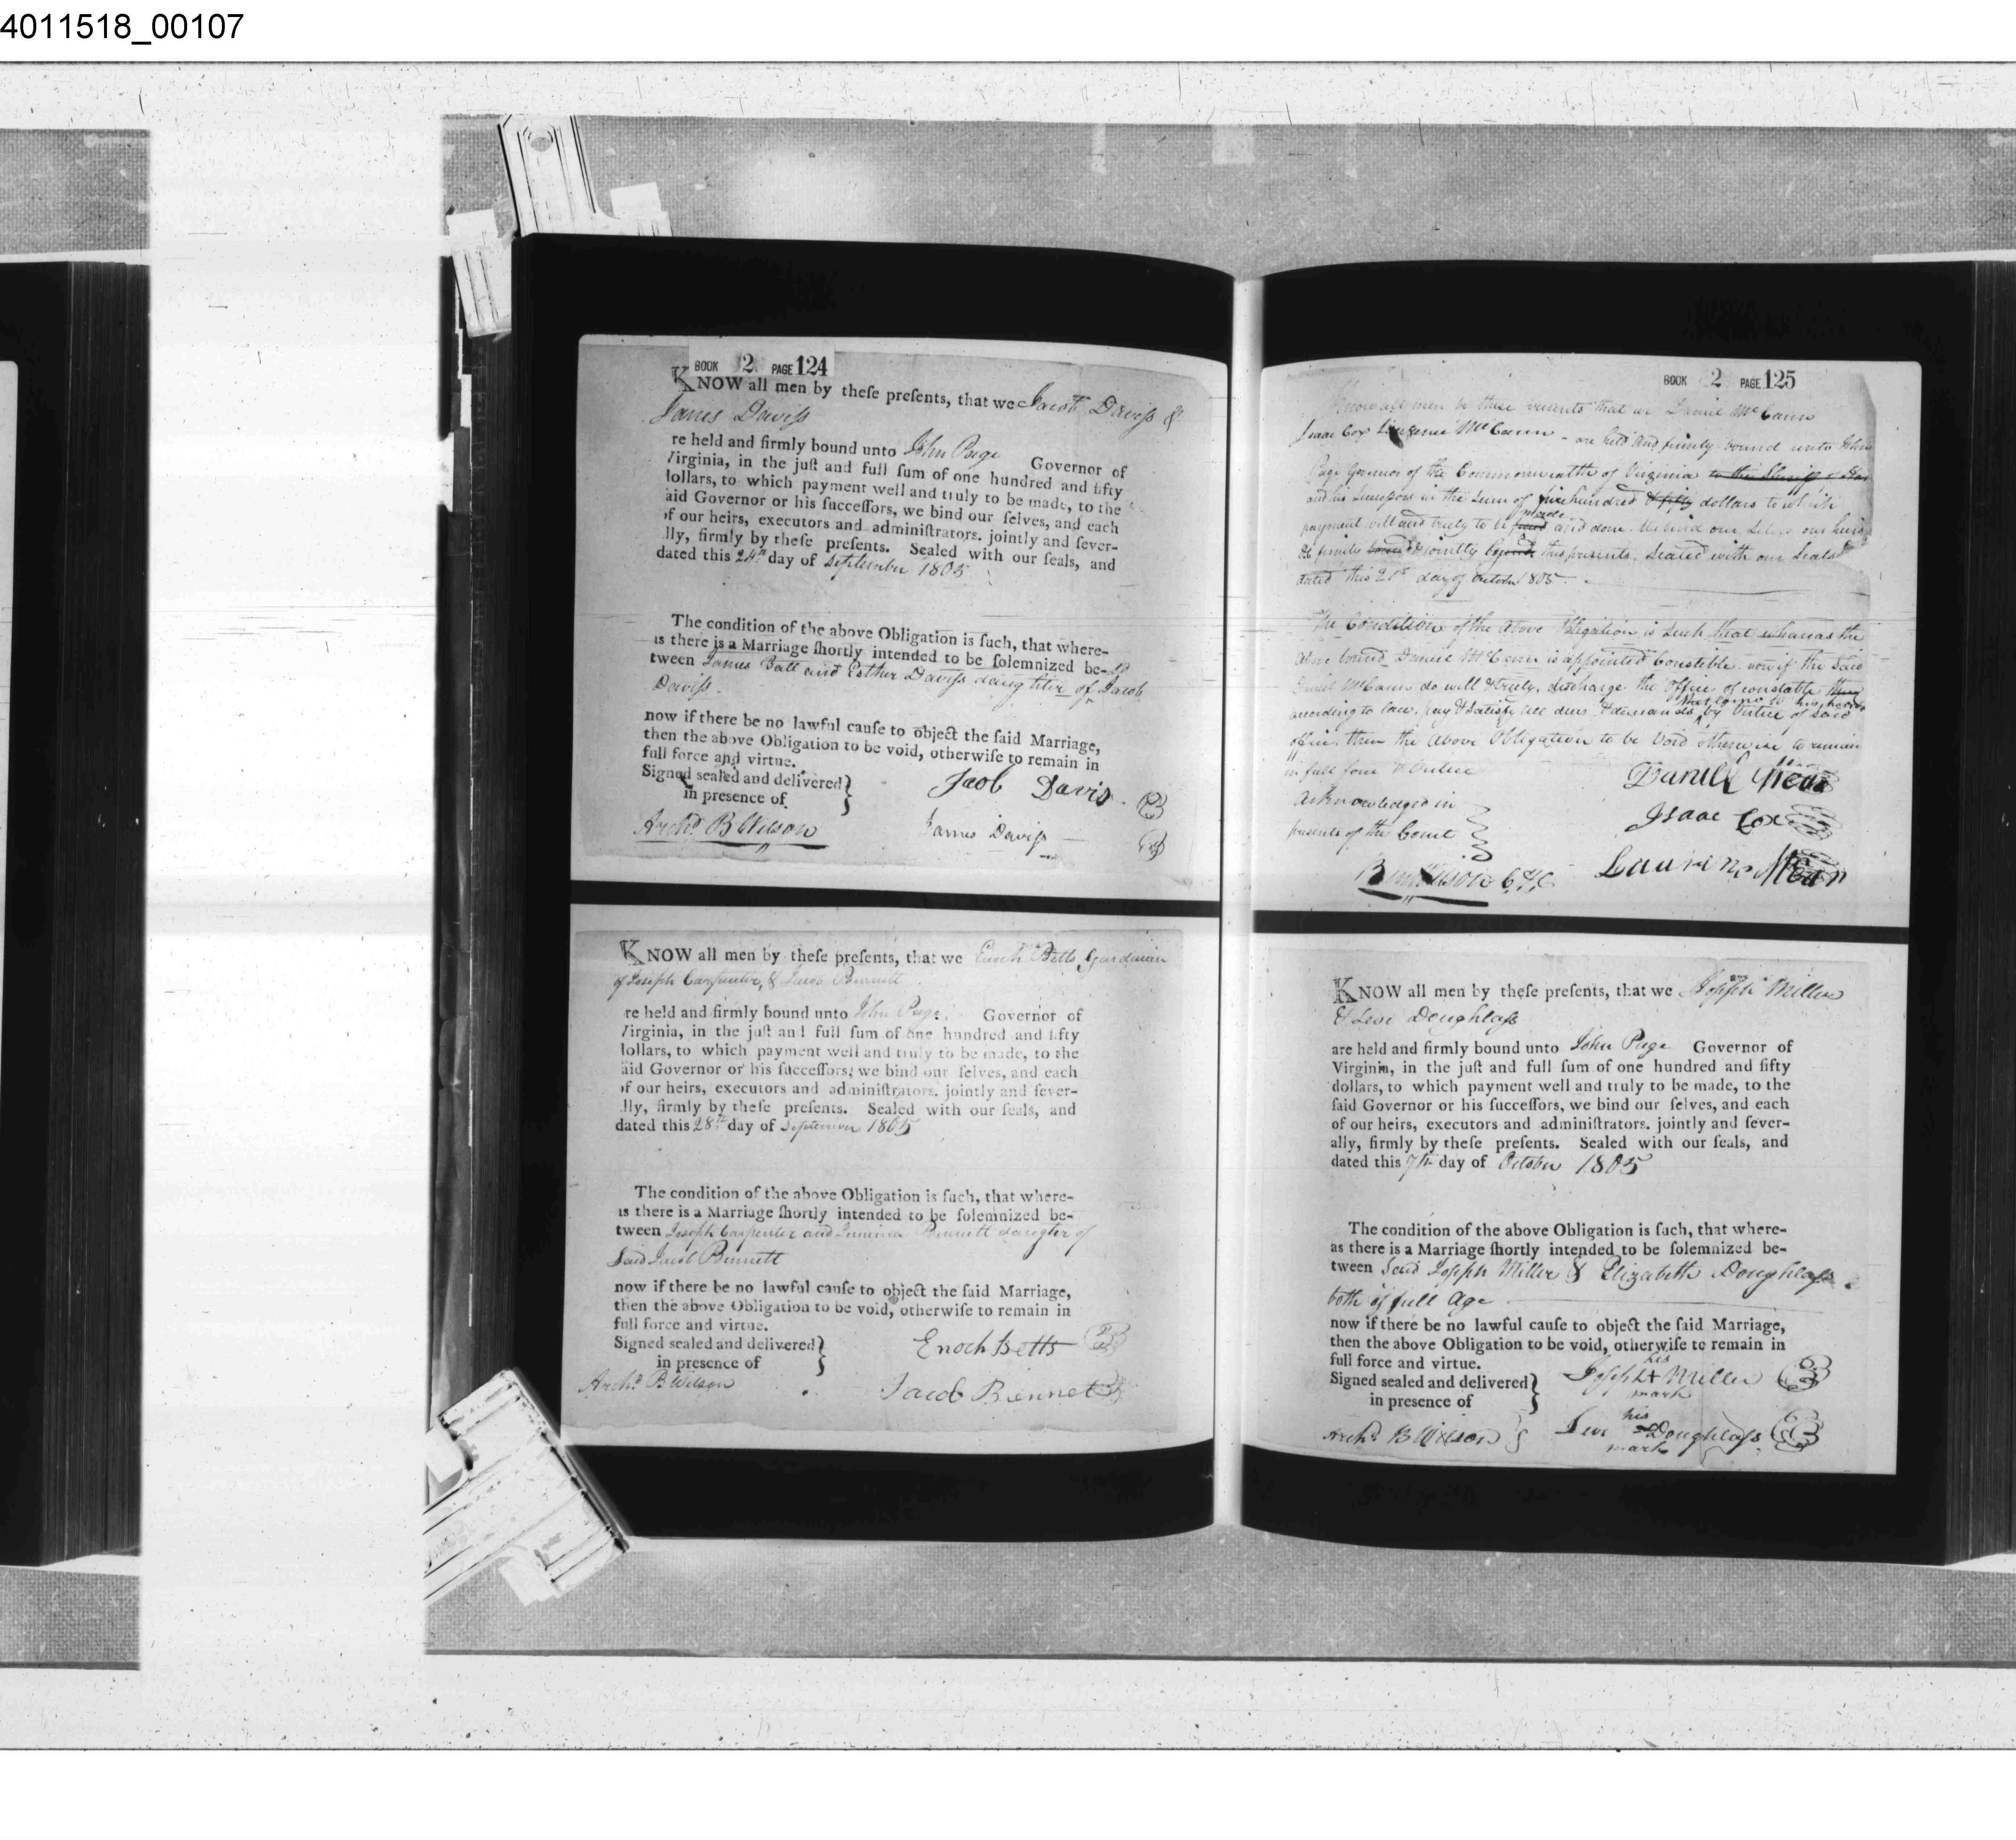 4011518_00107
BOOK 2 PAGE 124
KNOW all men by theſe preſents, that we Jacob Daviſs &
James Daviſs
re held and firmly bound unto John Page Governor of
Virginia, in the juſt and full ſum of one hundred and fifty
dollars, to which payment well and truly to be made, to the
aid Governor or his ſucceſſors, we bind our ſelves, and each
of our heirs, executors and adminiſtrators. jointly and ſever-
lly, firmly by theſe preſents. Sealed with our ſeals, and
dated this 24th day of September 1805
The condition of the above Obligation is ſuch, that where-
is there is a Marriage ſhortly intended to be ſolemnized be-
tween James Ball and Esther Daviſs daughter of Jacob
Daviſs.
now if there be no lawful cauſe to object the ſaid Marriage,
then the above Obligation to be void, otherwiſe to remain in
full force and virtue.
Signed sealed and delivered
in preſence of
Jacob Davis
Archd. B Wilson
James Daviſs
KNOW all men by theſe preſents, that we Enoch Betts Guardian
of Joseph Carpenter, & Jacob Bennett
re held and firmly bound unto John Page. Governor of
Virginia, in the juſt and full ſum of one hundred and fifty
dollars, to which payment well and truly to be made, to the
aid Governor or his ſucceſſors, we bind our ſelves, and each
of our heirs, executors and adminiſtrators. jointly and ſever-
lly, firmly by theſe preſents. Sealed with our ſeals, and
dated this 28th day of September 1805
The condition of the above Obligation is ſuch, that where-
is there is a Marriage ſhortly intended to be ſolemnized be-
tween Joseph Carpenter and Bennett daughter of
Said Jacob Bennett
now if there be no lawful cauſe to object the ſaid Marriage,
then the above Obligation to be void, otherwiſe to remain in
full force and virtue.
Signed sealed and delivered
in preſence of
Enoch Betts
Archd. B Wilson
Jacob Bennet
BOOK 2 PAGE 125
Know all men by these presents that we Daniel McCann
Isaac Cox McCann - are held and firmly bound unto John
Page Governor of the Commonwealth of Virginia
and his Successors in the Sum of hundred & fifty dollars to which
payment well and truly to be made and done. We bind our Selves our heirs
jointly by these presents. Sealed with our Seals
dated this 21st day of October 1805.
The Condition of the above Obligation is Such that whereas the
above bound Daniel McCann is appointed Constible. now if the Said
Daniel McCann do well & truly, discharge the Office of constable
according to law. pay & Satisfy all dues & demands that come to his hands by Virtue of Said
office, then the above Obligation to be Void otherwise to remain
in full force & Virtue
Acknowledged in
presents of the Court
Daniel McCan
Isaac Cox
B Wilson
McCan
KNOW all men by theſe preſents, that we Joſeph Miller
& Levi Doughlaſs
are held and firmly bound unto John Page Governor of
Virginia, in the juſt and full ſum of one hundred and fifty
dollars, to which payment well and truly to be made, to the
ſaid Governor or his ſucceſſors, we bind our ſelves, and each
of our heirs, executors and adminiſtrators. jointly and ſever-
ally, firmly by theſe preſents. Sealed with our ſeals, and
dated this 7th day of October 1805
The condition of the above Obligation is ſuch, that where-
as there is a Marriage ſhortly intended to be ſolemnized be-
tween Said Joſeph Miller & Elizabeth Doughlaſs
both of full Age
now if there be no lawful cauſe to object the ſaid Marriage,
then the above Obligation to be void, otherwiſe to remain in
full force and virtue.
Signed sealed and delivered
in preſence of
Joſeph his + mark Miller
Archd. B Wilson
Levi his mark Doughlaſs